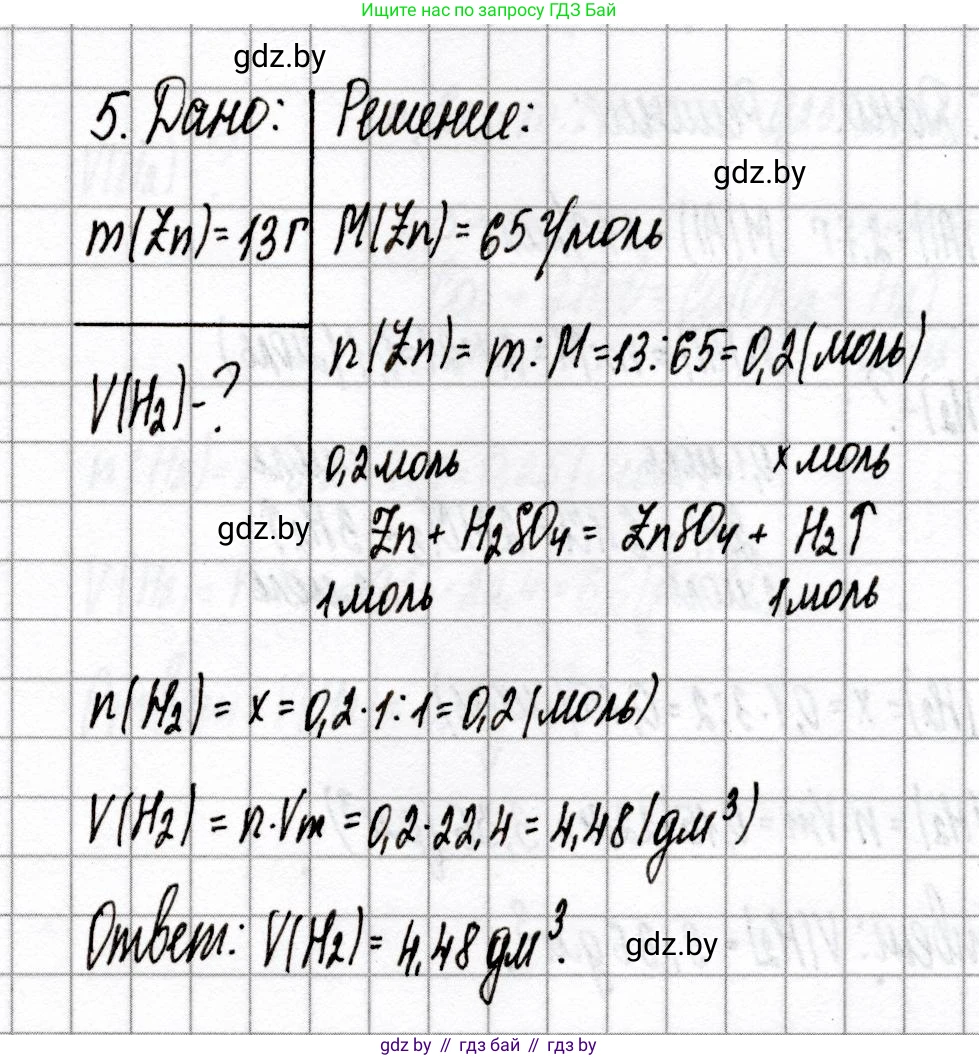 Ищите нас по запросу ГДЗ Бай
gdz.by
5. Дано: Решение:
gdz.by
m(Zn)=13г M(Zn) = 65 г/моль
n(Zn) = m : M = 13 : 65 = 0,2 (моль)
V(H₂) - ?
0,2 моль x моль
gdz.by
Zn + H₂SO₄ = ZnSO₄ + H₂↑
1 моль 1 моль
n(H₂) = x = 0,2 · 1 : 1 = 0,2 (моль)
V(H₂) = n · Vm = 0,2 · 22,4 = 4,48 (дм³)
Ответ: V(H₂) = 4,48 дм³.
gdz.by
gdz.by // гдз бай // gdz.by